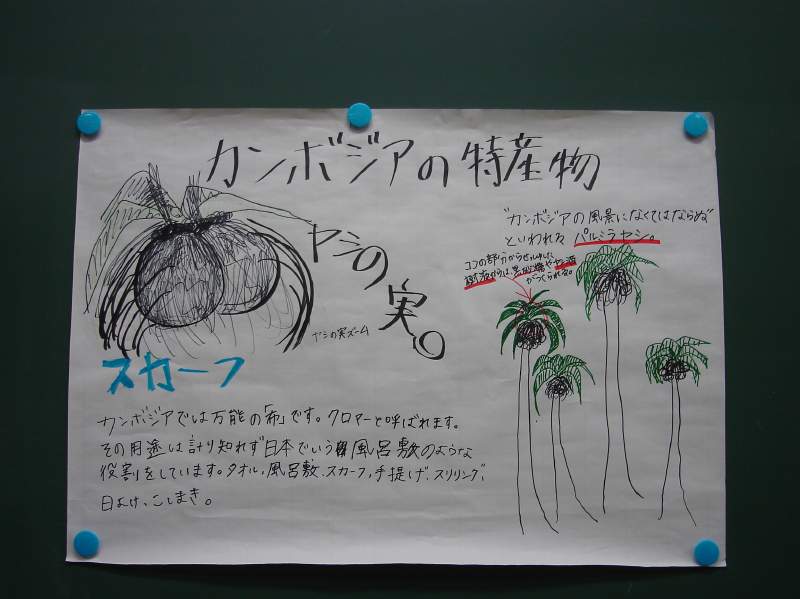 カンボジアの特産物
ヤシの実。
ヤシの実ズーム
"カンボジアの風景になくてはならぬ"
といわれる パルミラヤシ。
ココの部分からせっしゅした
樹液からは黒砂糖やヤシ酒
がつくられる。
スカーフ
カンボジアでは万能の「布」です。クロマーと呼ばれます。
その用途は計り知れず日本でいう風呂敷のような
役割をしています。タオル、風呂敷、スカーフ、手提げ、スリリング、
日よけ、こしまき。